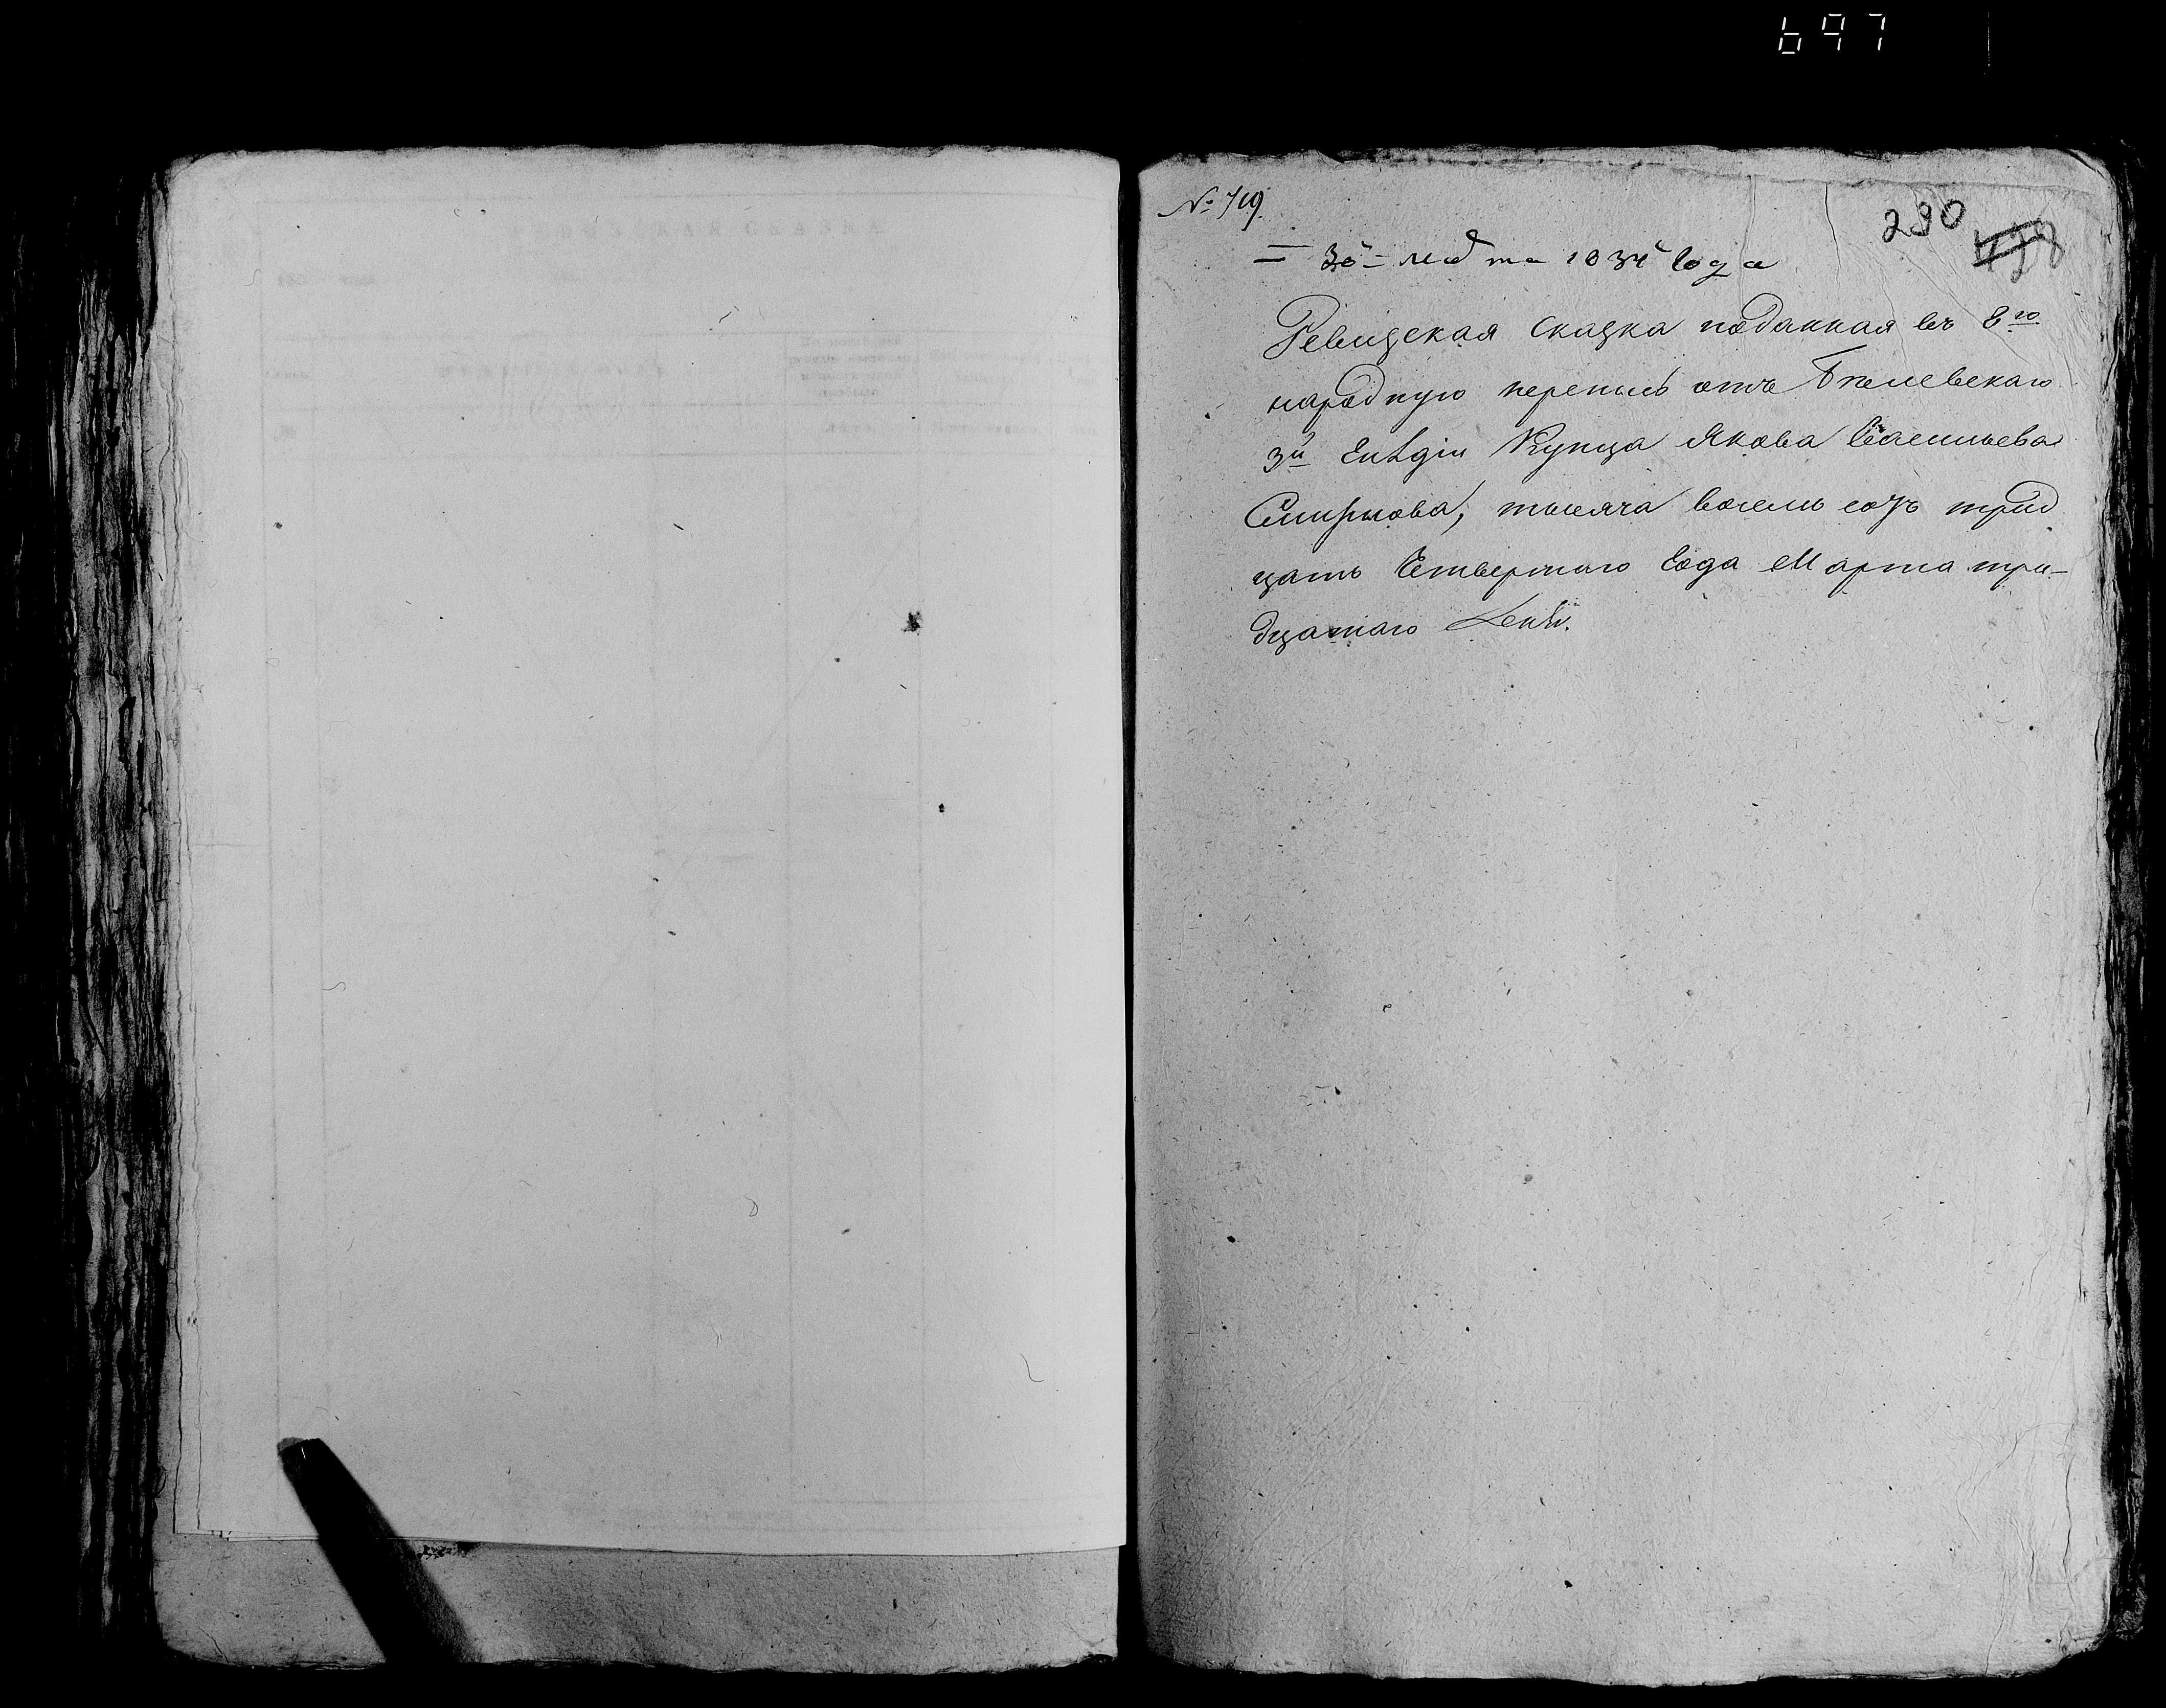 697
№ 719
290
30 Марта 1834 года
Ревизская сказка поданная въ 8ю
народную перепись отъ Белевскаго
3й Гилдіи Купца Якова Васильева
Смирнова, тысяча восемь сотъ трид
цать Четвертаго Года Марта три-
дцатаго дня.